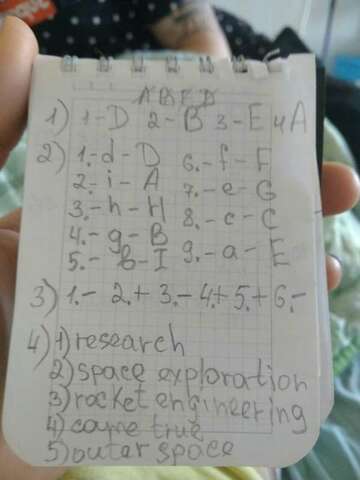 A B E D
1) 1-D 2-B 3-E 4A
2) 1.-d-D 6.-f-F
2.-i-A 7.-e-G
3.-h-H 8.-c-C
4.-g-B 9.-a-E
5.-b-I
3) 1.- 2.+ 3.- 4.+ 5.+ 6.-
4) 1) research
2) space exploration
3) rocket engineering
4) came true
5) outer space